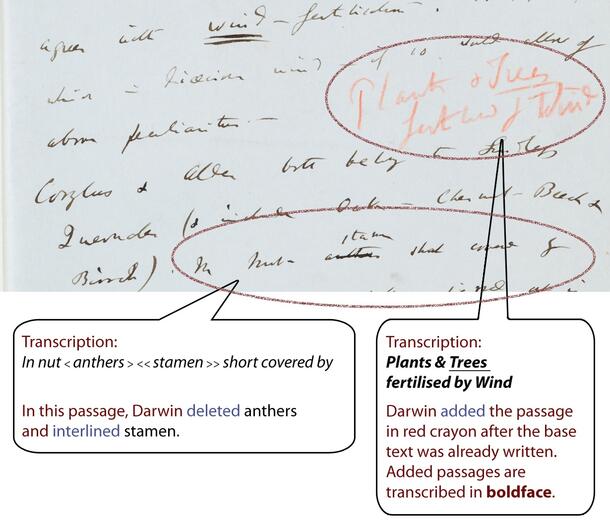 agrees with wind-fertilisation.
wind
Plants & Trees
fertilised by Wind
above peculiarities —
Corylus & Alder both belong to
(& include Oak – Chesnut – Beech &
stamen
Birch). In Nut anthers short covered by
Transcription:
In nut < anthers > << stamen >> short covered by
In this passage, Darwin deleted anthers
and interlined stamen.
Transcription:
Plants & Trees
fertilised by Wind
Darwin added the passage
in red crayon after the base
text was already written.
Added passages are
transcribed in boldface.